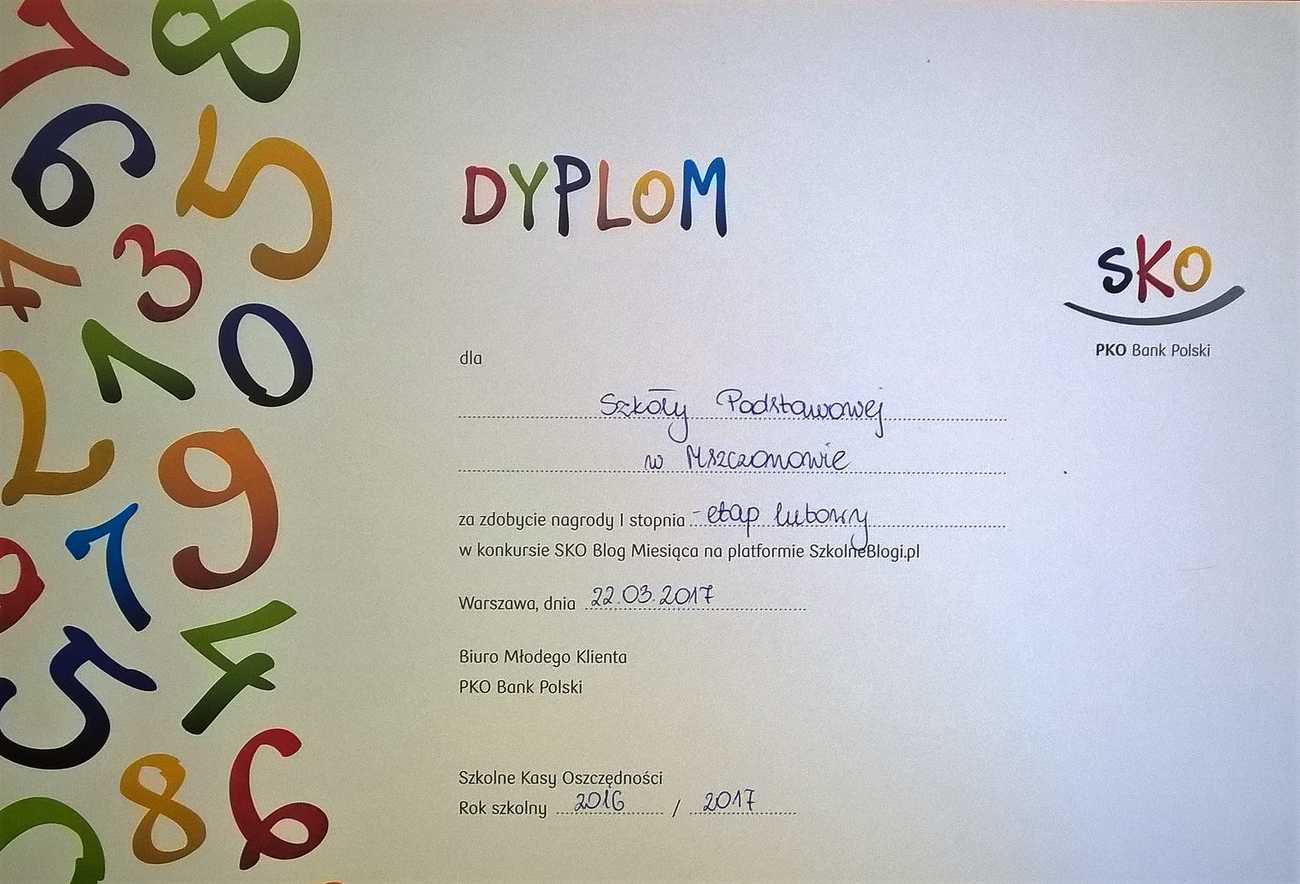 DYPLOM
SKO
PKO Bank Polski
dla
Szkoły Podstawowej
w Mszczonowie
za zdobycie nagrody I stopnia - etap lutowy
w konkursie SKO Blog Miesiąca na platformie SzkolneBlogi.pl
Warszawa, dnia 22.03.2017
Biuro Młodego Klienta
PKO Bank Polski
Szkolne Kasy Oszczędności
Rok szkolny 2016 / 2017